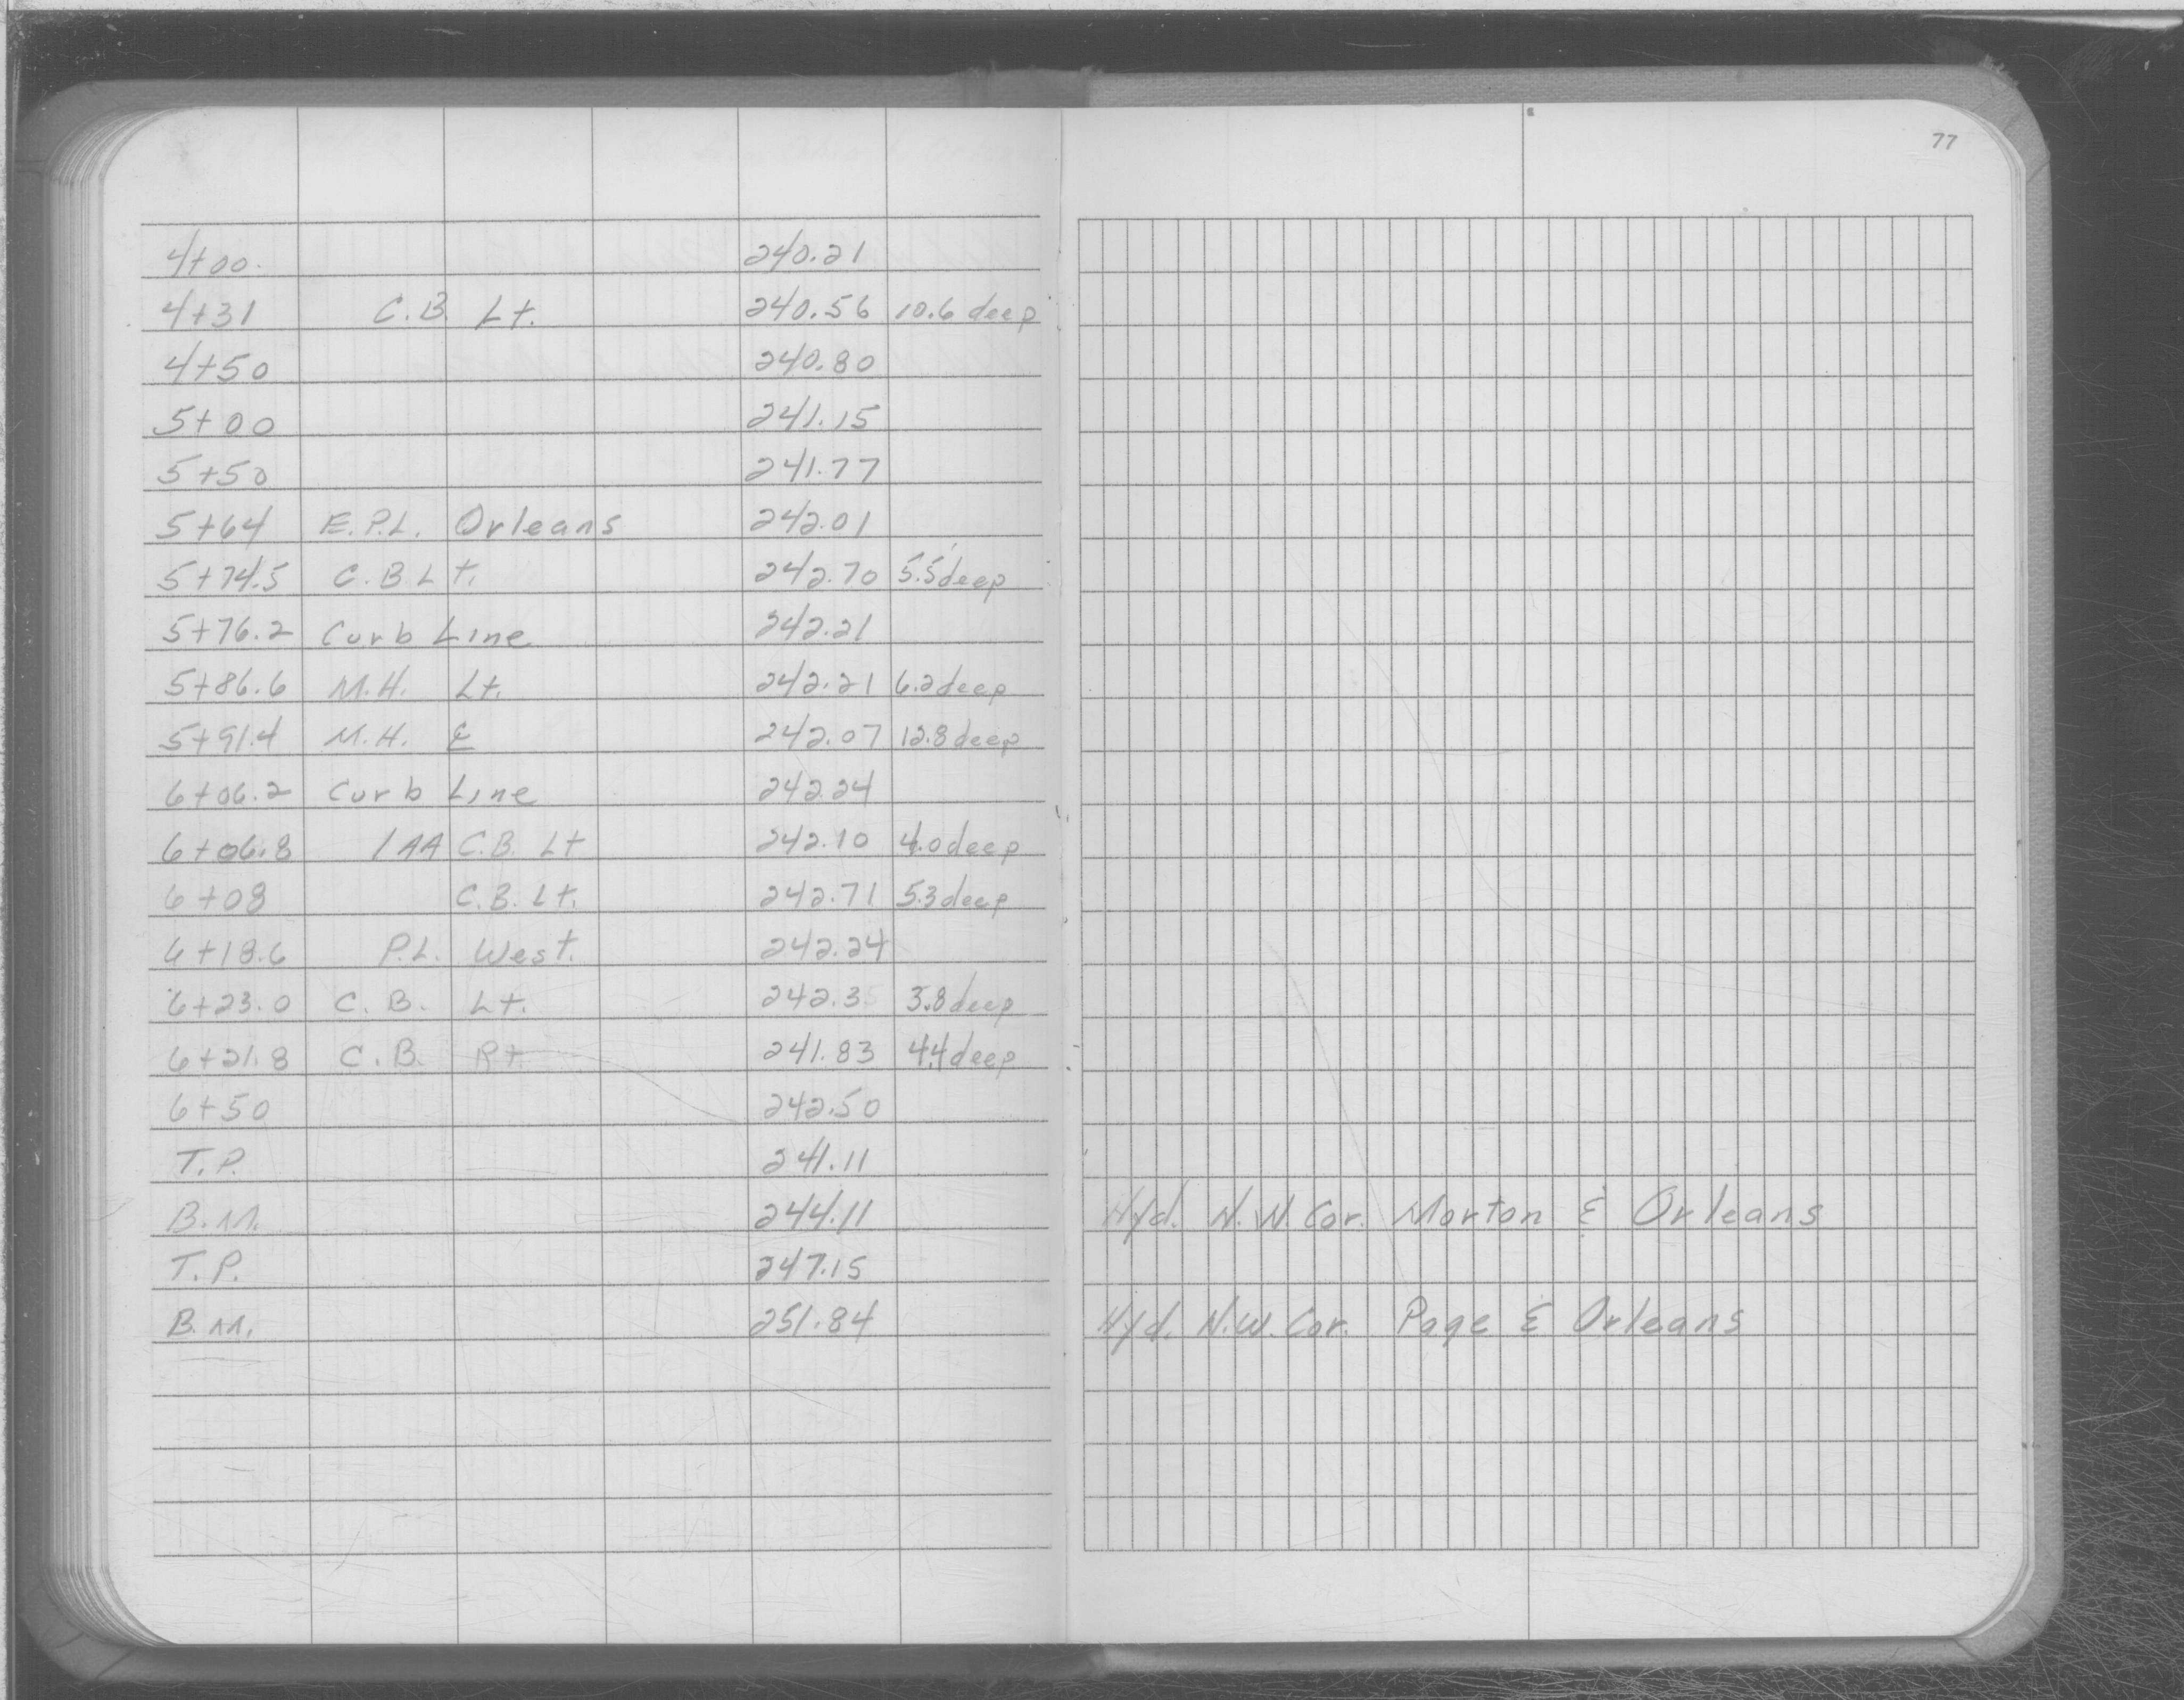 77
4+00. 240.21
4+31 C.B. Lt. 240.56 10.6 deep
4+50 240.80
5+00 241.15
5+50 241.77
5+64 E.P.L. Orleans 242.01
5+74.5 C.B Lt. 242.70 5.5 deep
5+76.2 Curb Line 242.21
5+86.6 M.H. Lt. 242.21 6.2 deep
5+91.4 M.H. & 242.07 12.8 deep
6+06.2 Curb Line 242.24
6+06.8 1AA C.B. Lt 242.10 4.0 deep
6+08 C.B. Lt. 242.71 5.3 deep
6+18.6 P.L. West. 242.24
6+23.0 C.B. Lt. 242.35 3.8 deep
6+21.8 C.B. Rt. 241.83 4.4 deep
6+50 242.50
T.P. 241.11
B.M. 244.11 Hyd. N.W. Cor. Morton & Orleans
T.P. 247.15
B.M. 251.84 Hyd. N.W. Cor. Page & Orleans